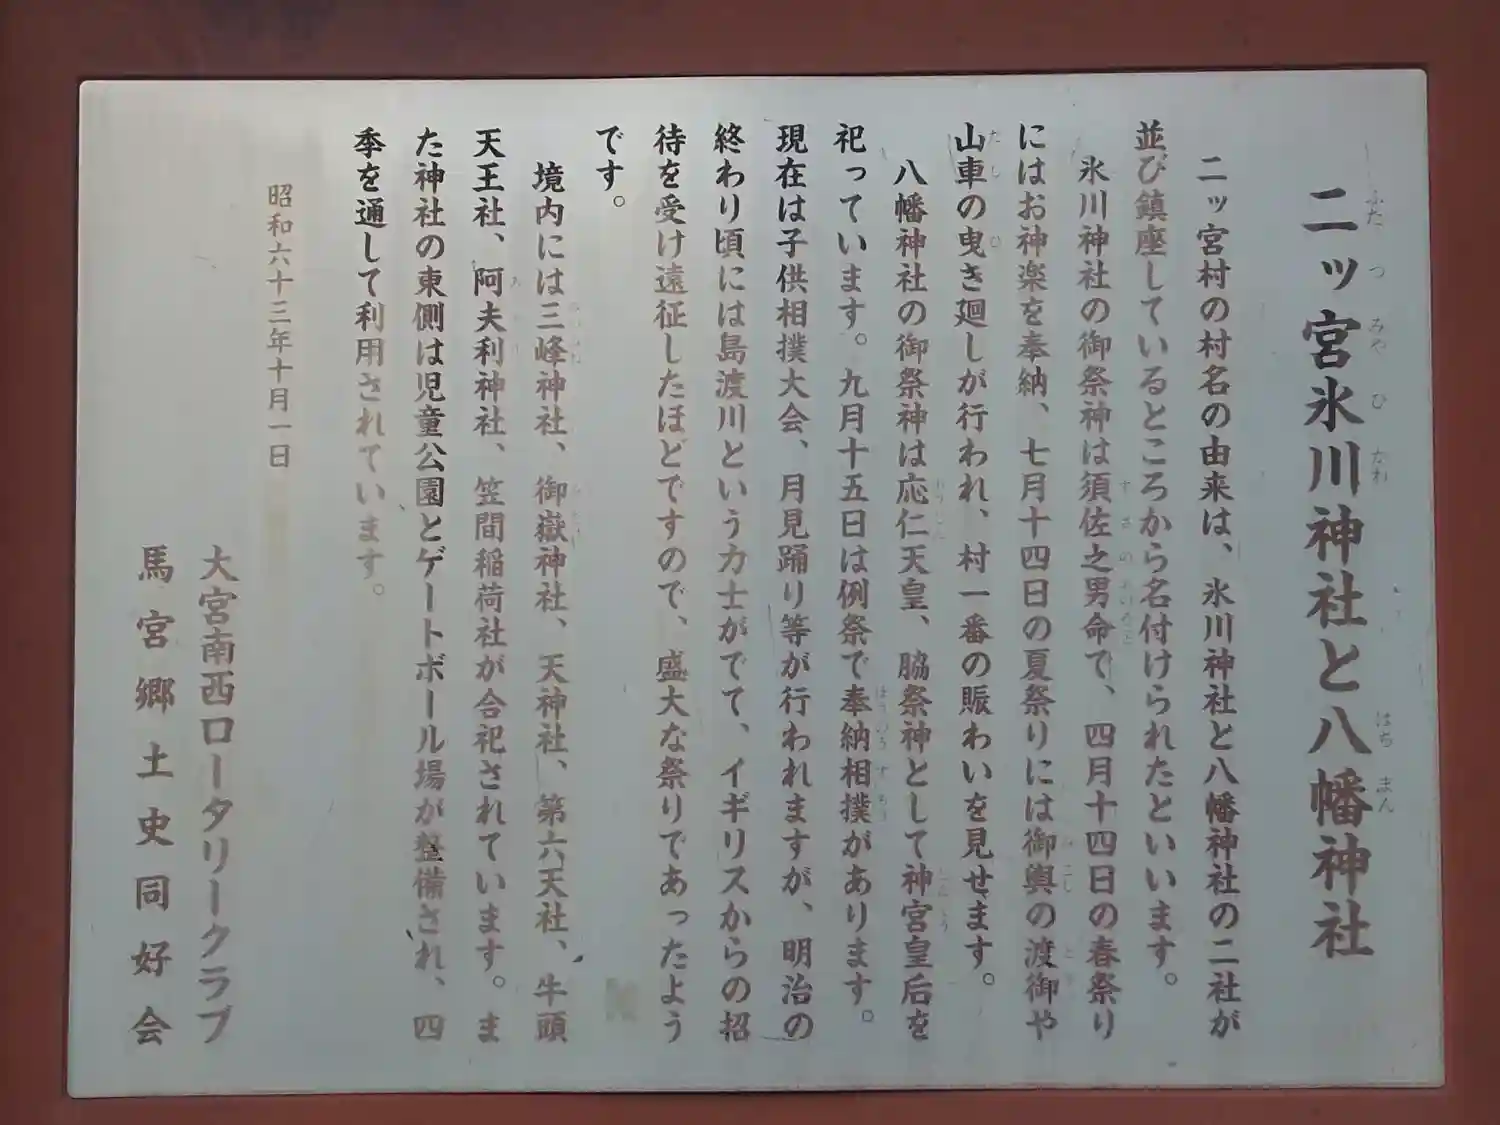 二ッ宮氷川神社と八幡神社
二ッ宮村の村名の由来は、氷川神社と八幡神社の二社が
並び鎮座しているところから名付けられたといいます。
氷川神社の御祭神は須佐之男命で、四月十四日の春祭り
にはお神楽を奉納、七月十四日の夏祭りには御輿の渡御や
山車の曳き廻しが行われ、村一番の賑わいを見せます。
八幡神社の御祭神は応仁天皇、脇祭神として神宮皇后を
祀っています。九月十五日は例祭で奉納相撲があります。
現在は子供相撲大会、月見踊り等が行われますが、明治の
終わり頃には島渡川という力士がでて、イギリスからの招
待を受け遠征したほどですので、盛大な祭りであったよう
です。
境内には三峰神社、御嶽神社、天神社、第六天社、牛頭
天王社、阿夫利神社、笠間稲荷社が合祀されています。ま
た神社の東側は児童公園とゲートボール場が整備され、四
季を通して利用されています。
昭和六十三年十月一日
大宮南西ロータリークラブ
馬宮郷土史同好会